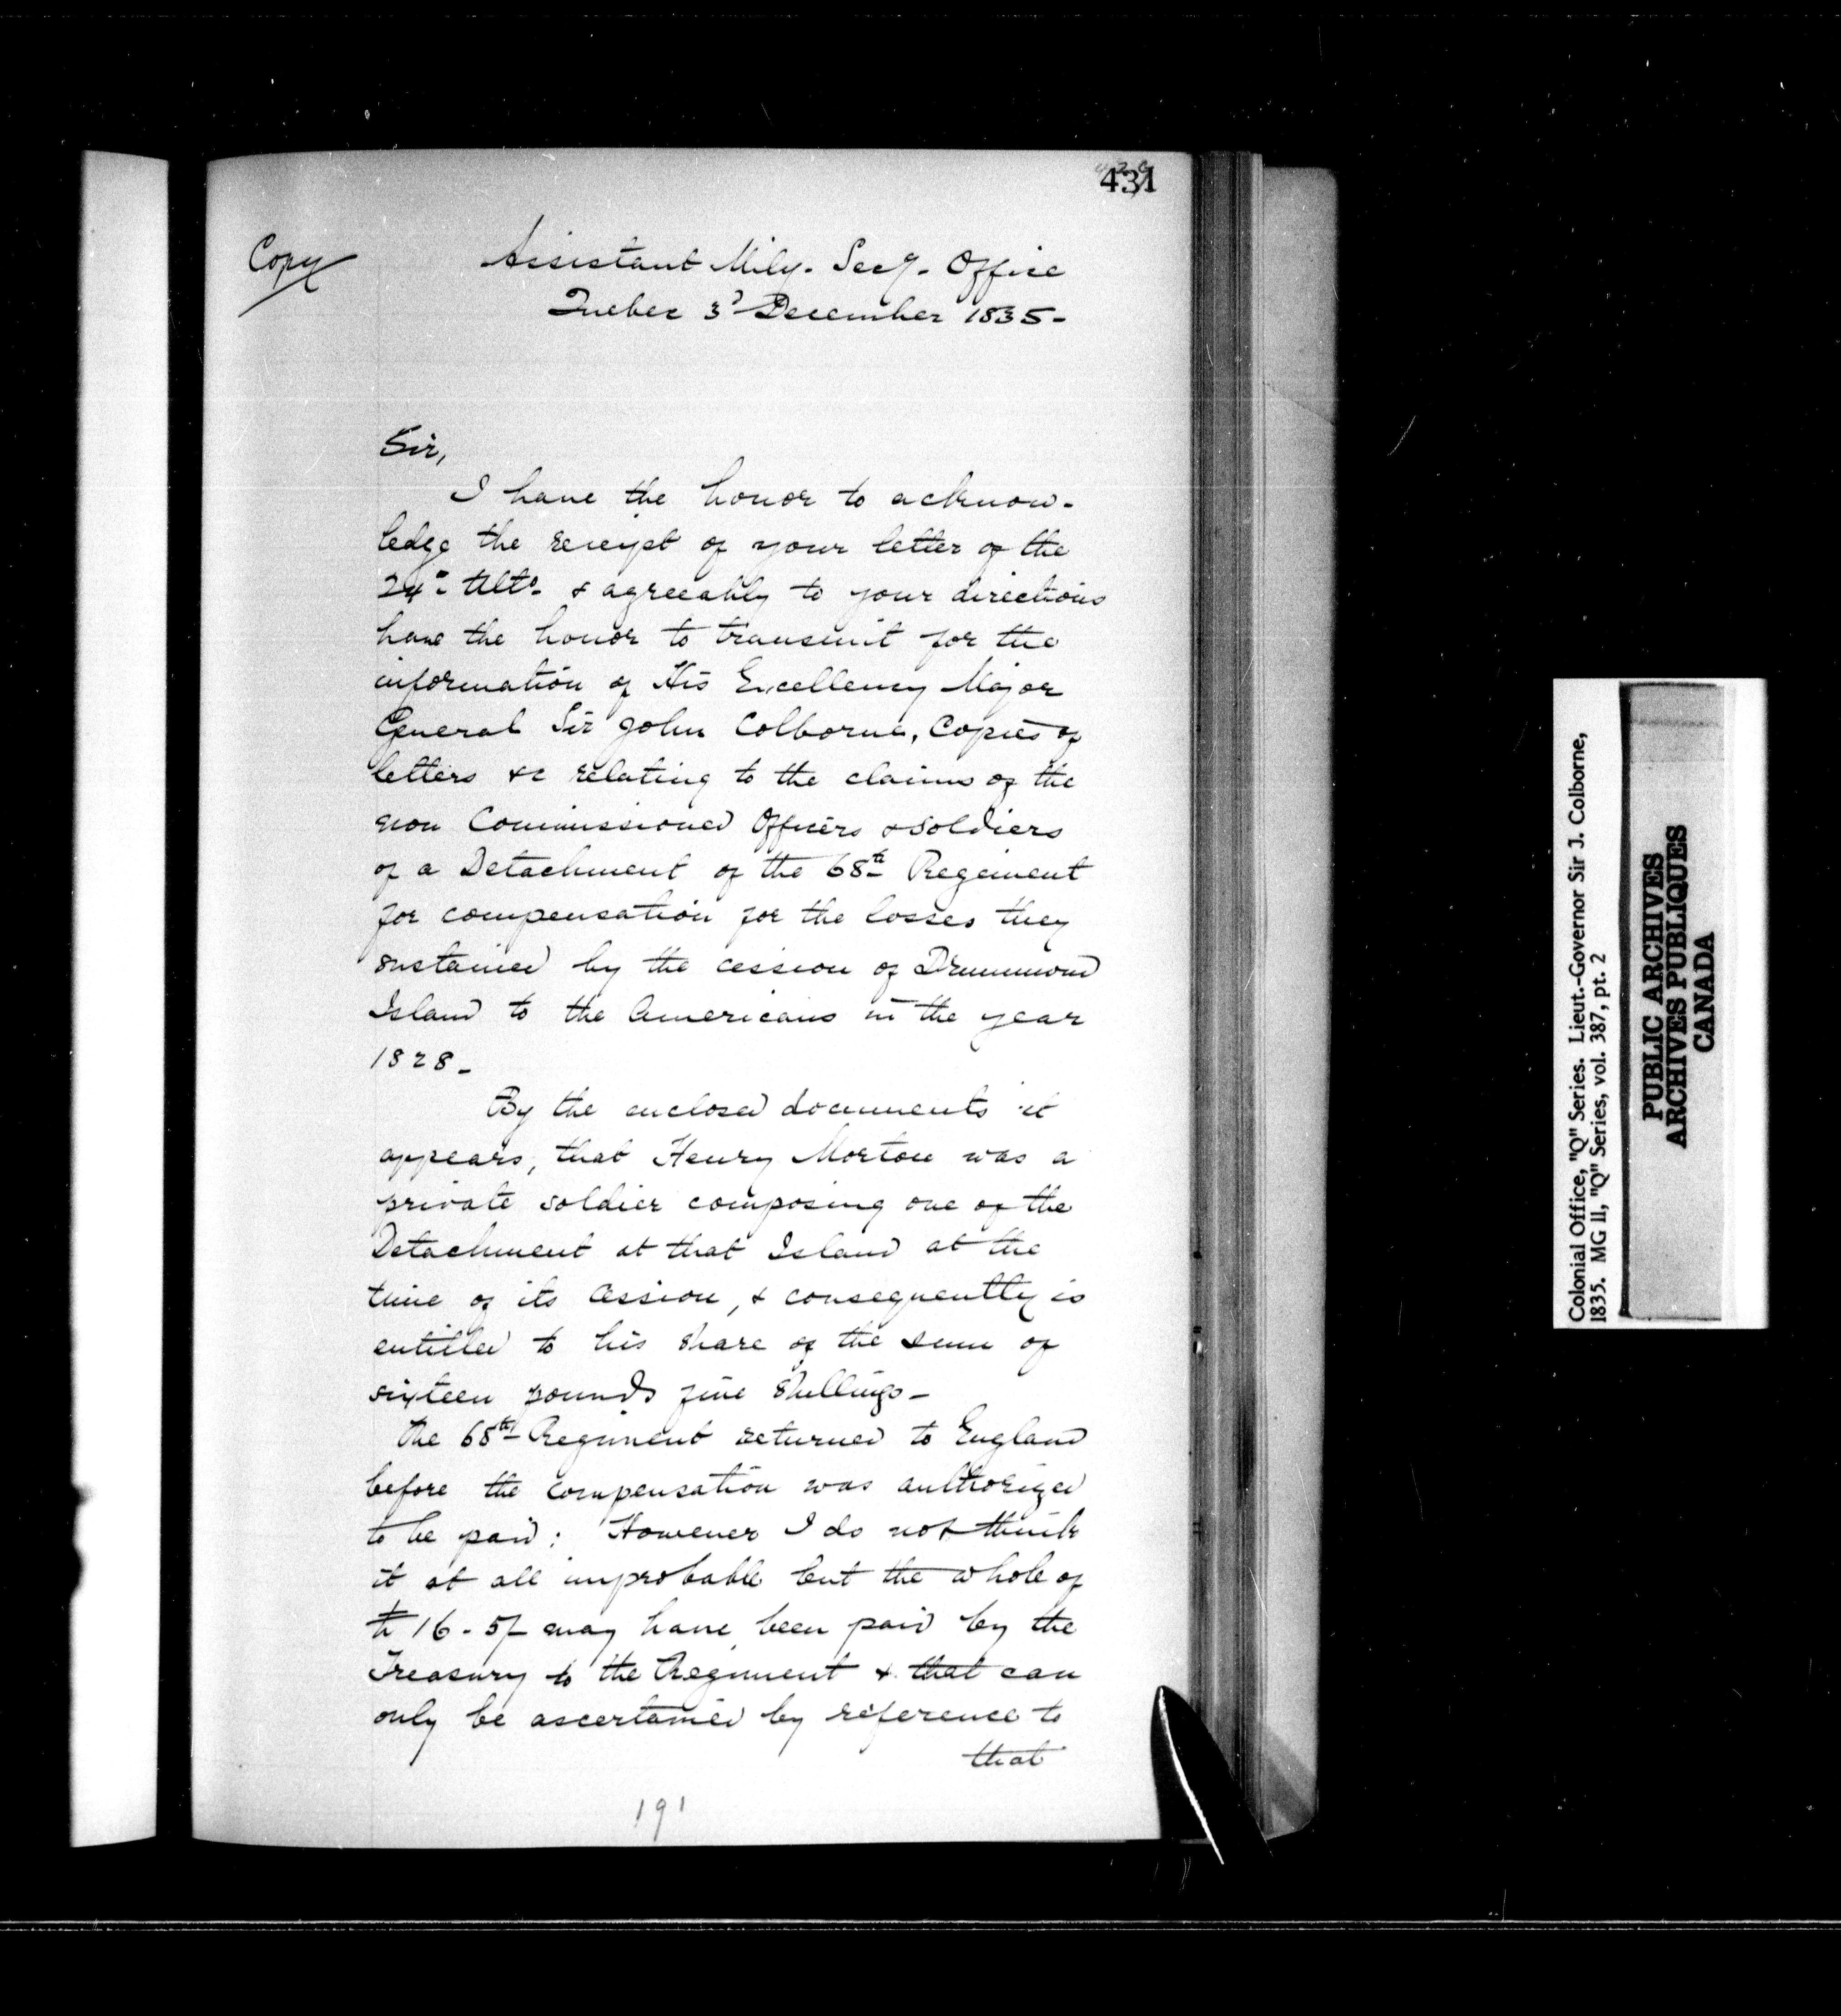 431
Copy
Assistant Mily. Secy. Office
Quebec 3d December 1835-
Sir,
I have the honor to acknow-
ledge the receipt of your letter of the
24th Ulto. & agreeably to your directions
have the honor to transmit for the
information of His Excellency Major
General Sir John Colborne, Copies of
letters &c relating to the claims of the
non Commissioned Officers & Soldiers
of a Detachment of the 68th Regiment
for compensation for the losses they
sustained by the cession of Drummond
Island to the Americans in the year
1828-
By the enclosed documents it
appears, that Henry Morton was a
private soldier composing one of the
Detachment at that Island at the
time of its Cession, & consequently is
entitled to his share of the sum of
sixteen pounds five Shillings-
The 68th Regiment returned to England
before the compensation was authorized
to be paid: However I do not think
it at all improbable but the whole of
16-5/- may have been paid by the
Treasury to the Regiment & that can
only be ascertained by reference to
that
191
Colonial Office, "Q" Series. Lieut.-Governor Sir J. Colborne,
1835. MG 11, "Q" Series, vol. 387, pt. 2
PUBLIC ARCHIVES
ARCHIVES PUBLIQUES
CANADA